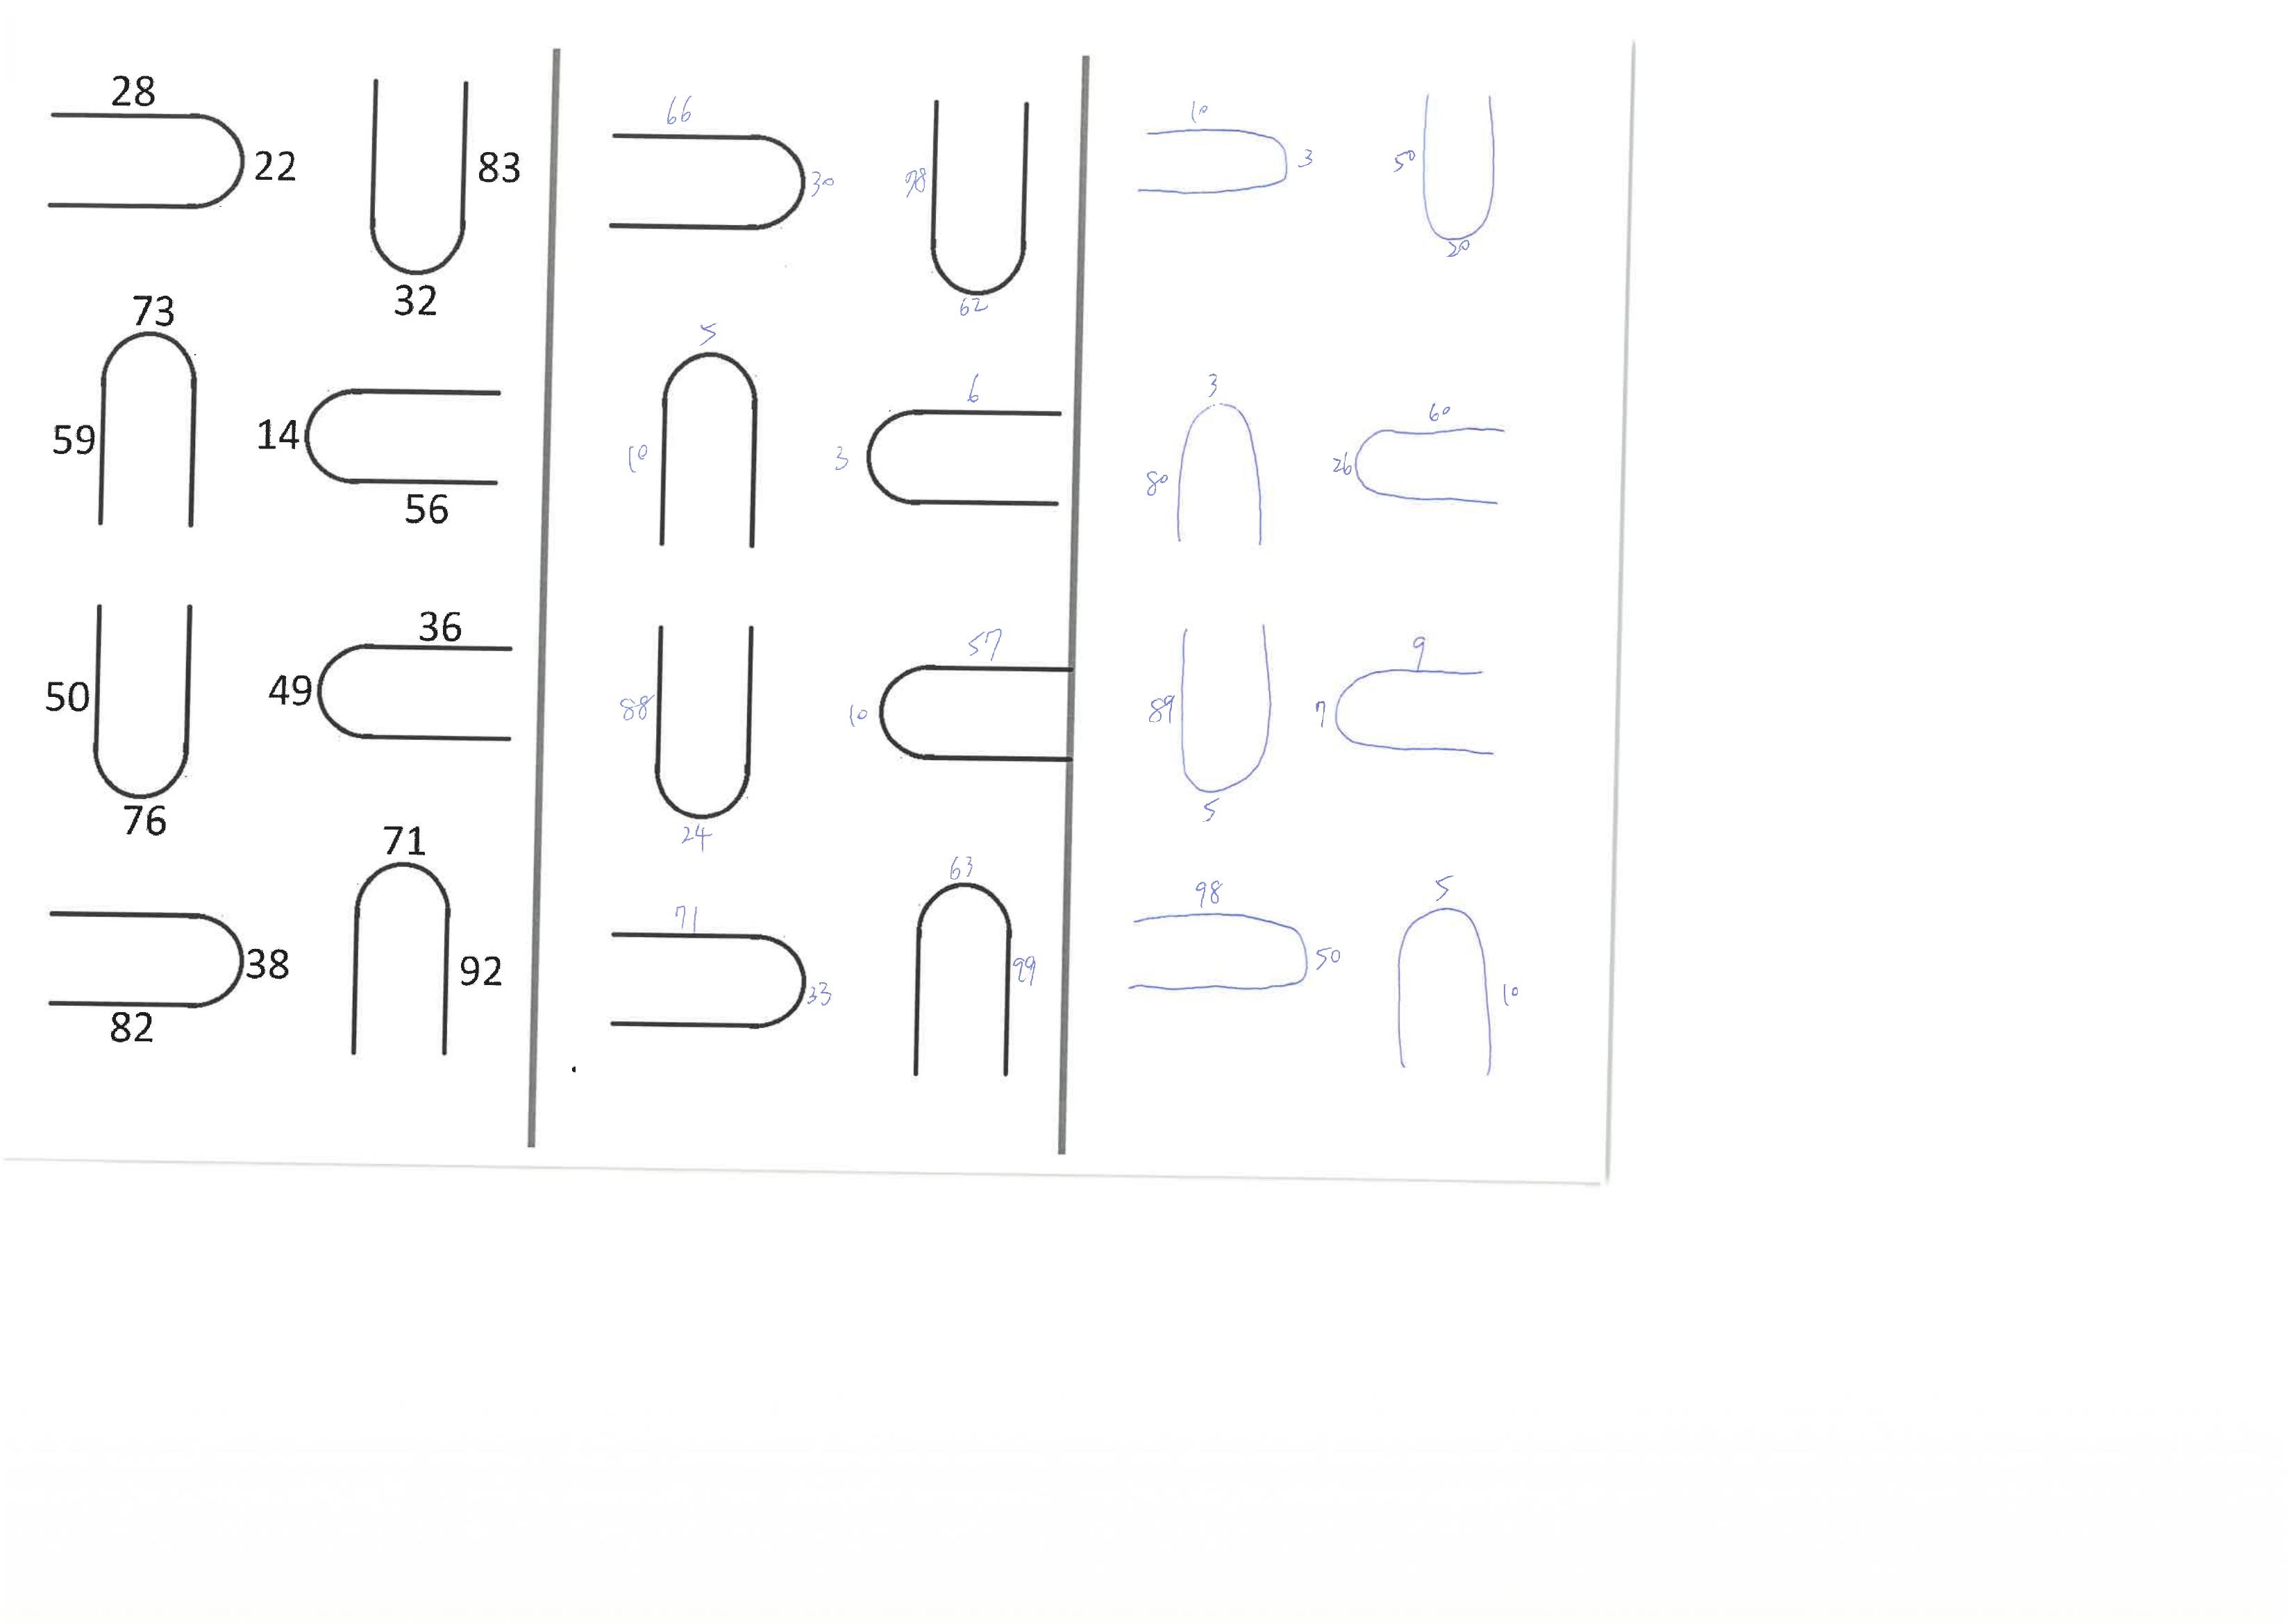 28
22
83
32
73
59
14
56
50
76
36
49
71
38
82
92
66
30
98
62
5
10
6
3
88
24
57
10
71
33
63
99
10
3
50
20
3
80
60
26
89
5
9
7
98
50
5
10